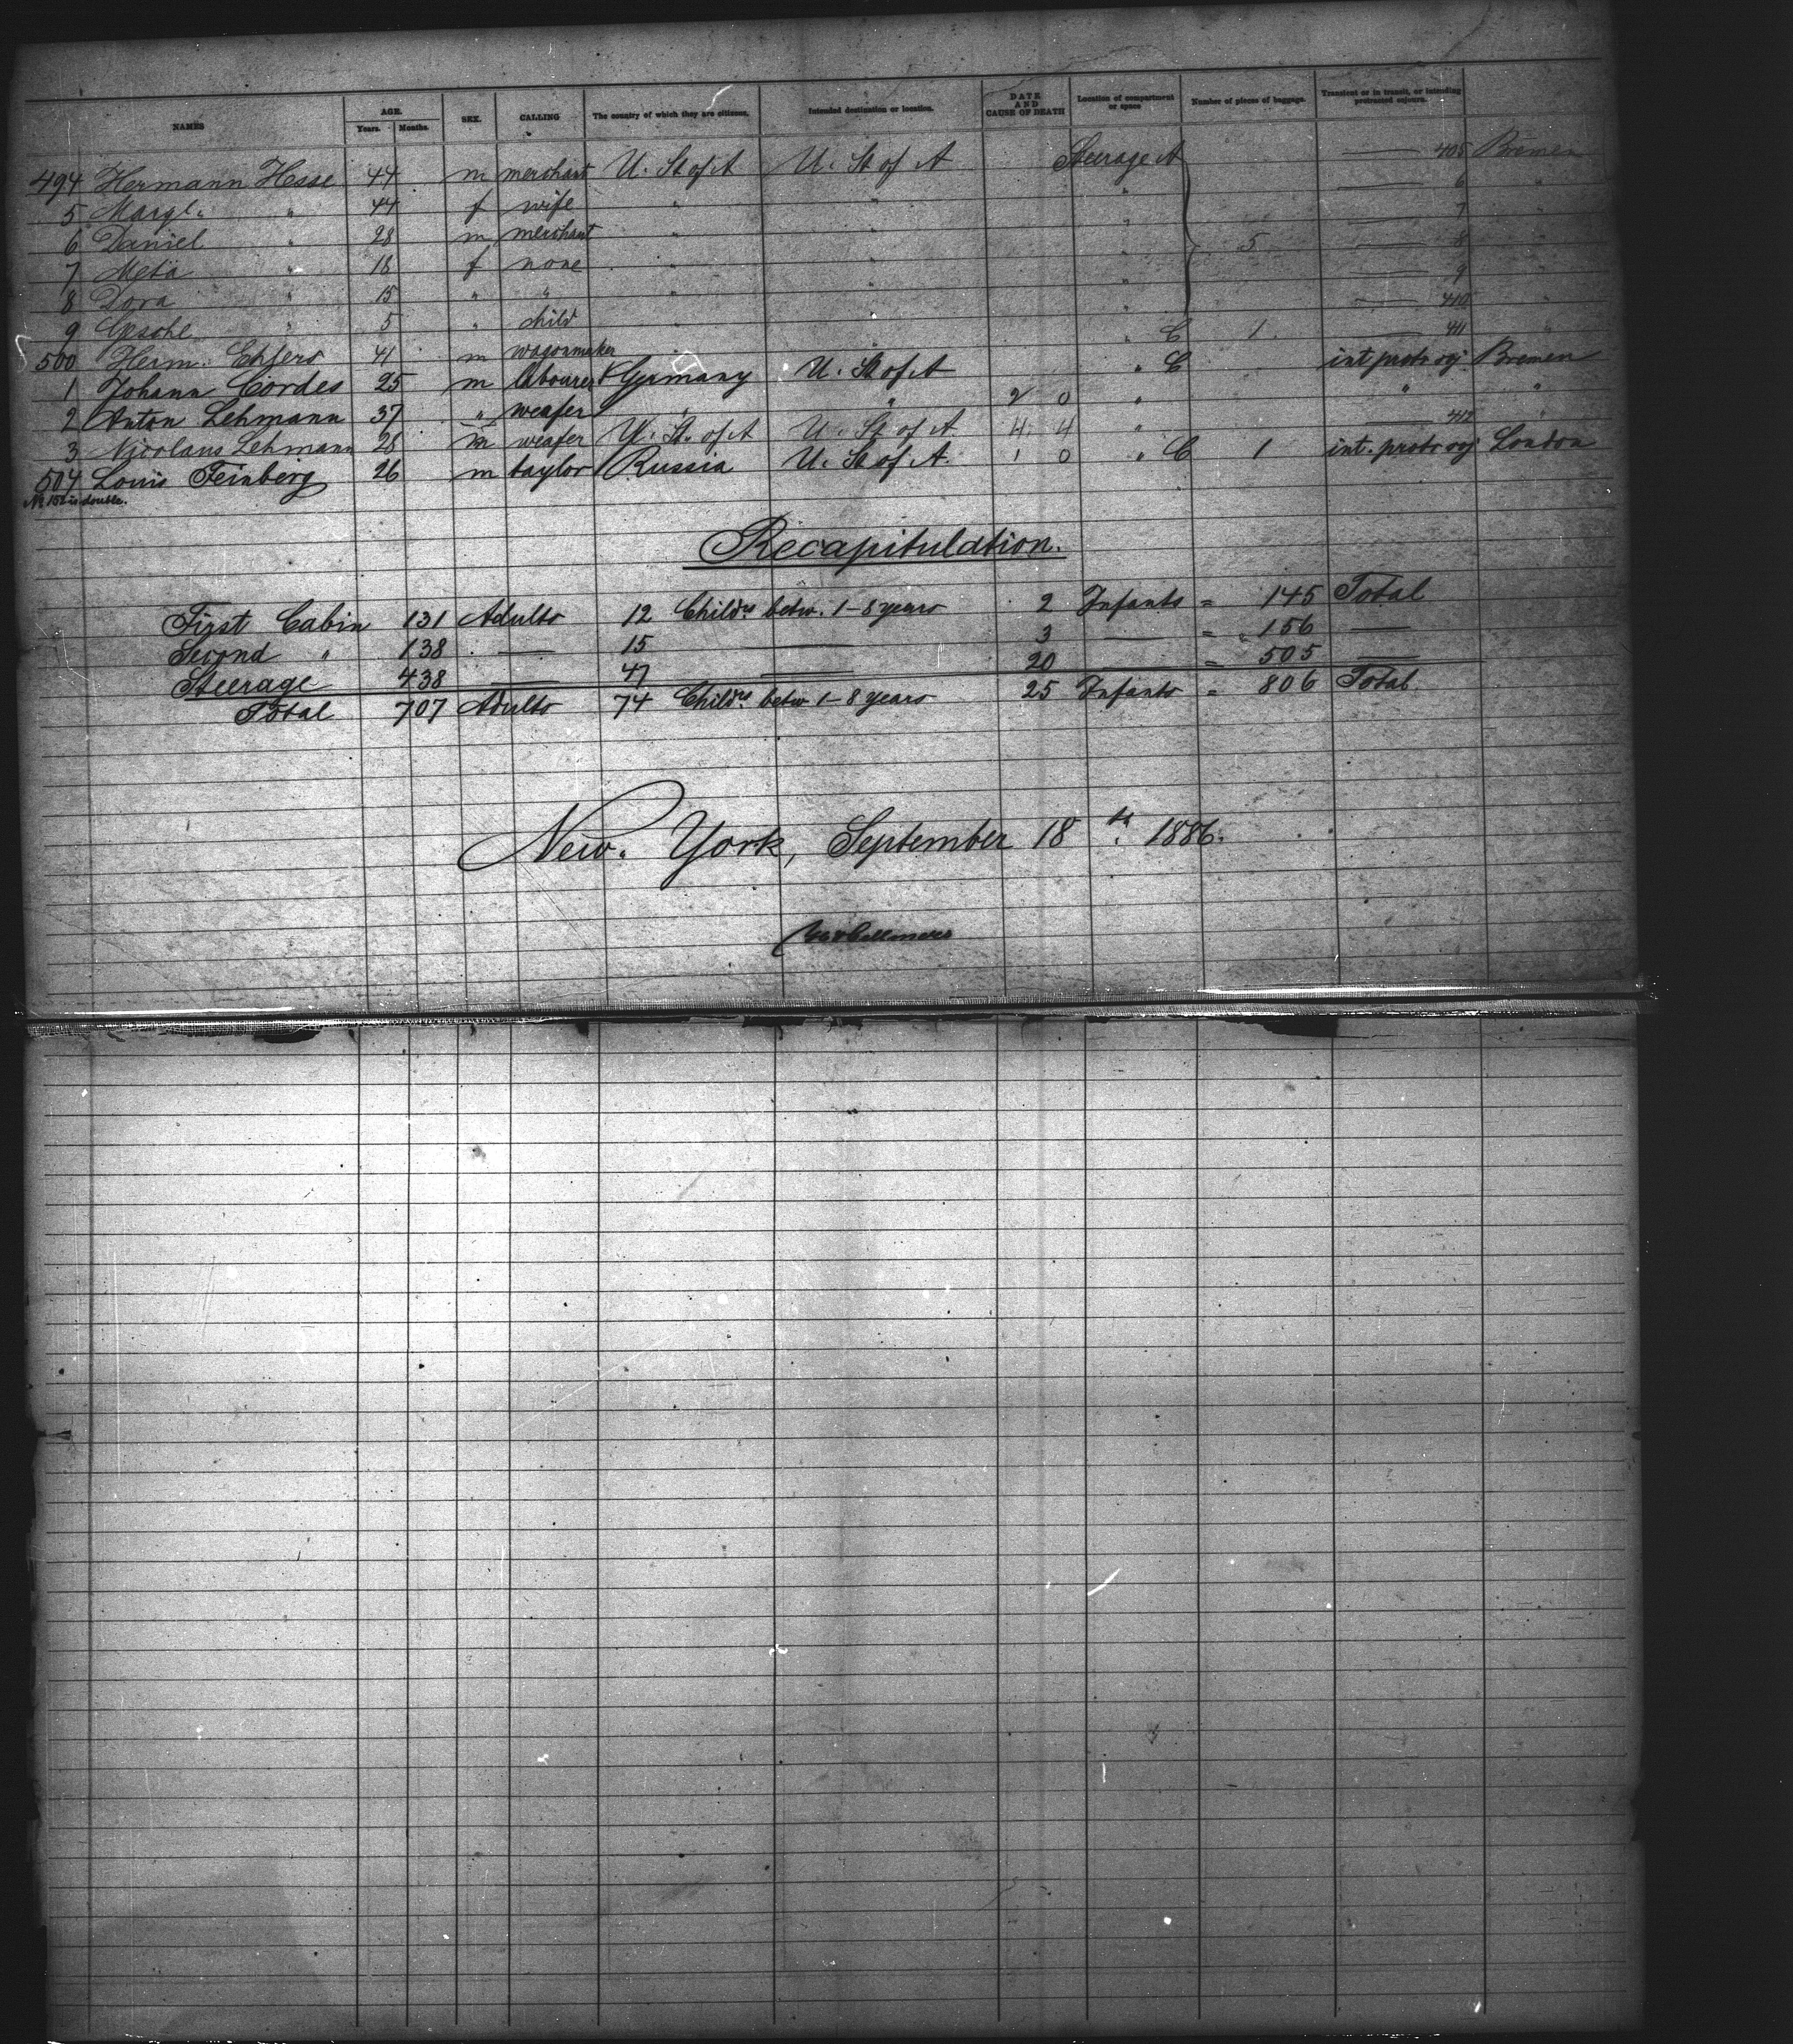 NAMES AGE. Years. Months. SEX. CALLING The country of which they are citizens. Intended destination or location. DATE AND CAUSE OF DEATH Location of compartment or space Number of pieces of baggage. Transient or in transit, or intending protracted sojourn.
494 Hermann Hesse 44 m merchant U. St of A U. St of A Steerage A 405 Bremen
5 Margt. " 44 f wife " " " 6 "
6 Daniel " 28 m merchant " " " 7 "
7 Meta " 18 f none " " " 5 8 "
8 Dora " 15 " " " " " 9 "
9 Gesche " 5 " child " " " 410 "
500 Herm. Ehlers 41 m wagonmaker " " " C 1 411 "
1 Johann Cordes 25 m labourer Germany U. St of A " C int protr soj Bremen
2 Anton Lehmann 37 " weafer " " 2 0 " " "
3 Nicolaus Lehmann 28 m weafer U. St. of A U. St of A. 4 4 " 412 "
504 Louis Feinberg 26 m taylor Russia U. St of A. 1 0 " C 1 int. protr soj London
No 152 is double.
Recapitulation.
First Cabin 131 Adults 12 Childrs betw. 1-8 years 2 Infants = 145 Total
Second " 138 — 15 — 3 — = " 156 —
Steerage 438 — 47 — 20 — = 505 —
Total 707 Adults 74 Childrs betw 1-8 years 25 Infants = 806 Total
New York, September 18th 1886.